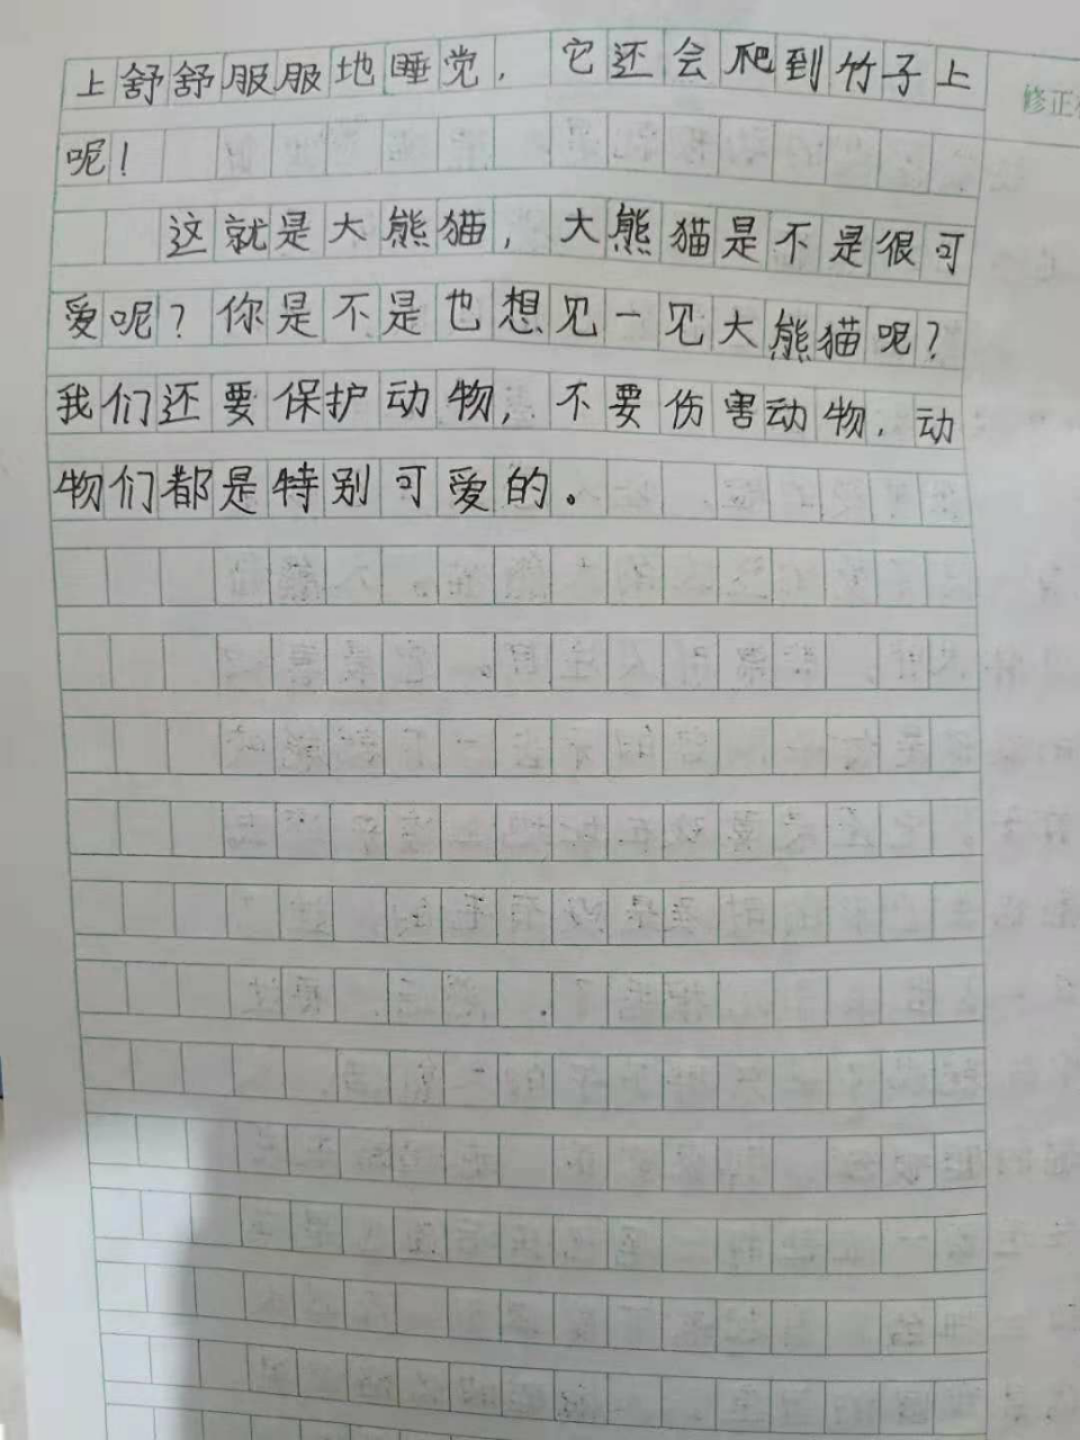 上舒舒服服地睡觉，它还会爬到竹子上
修正
呢！
这就是大熊猫，大熊猫是不是很可
爱呢？你是不是也想见一见大熊猫呢？
我们还要保护动物，不要伤害动物，动
物们都是特别可爱的。